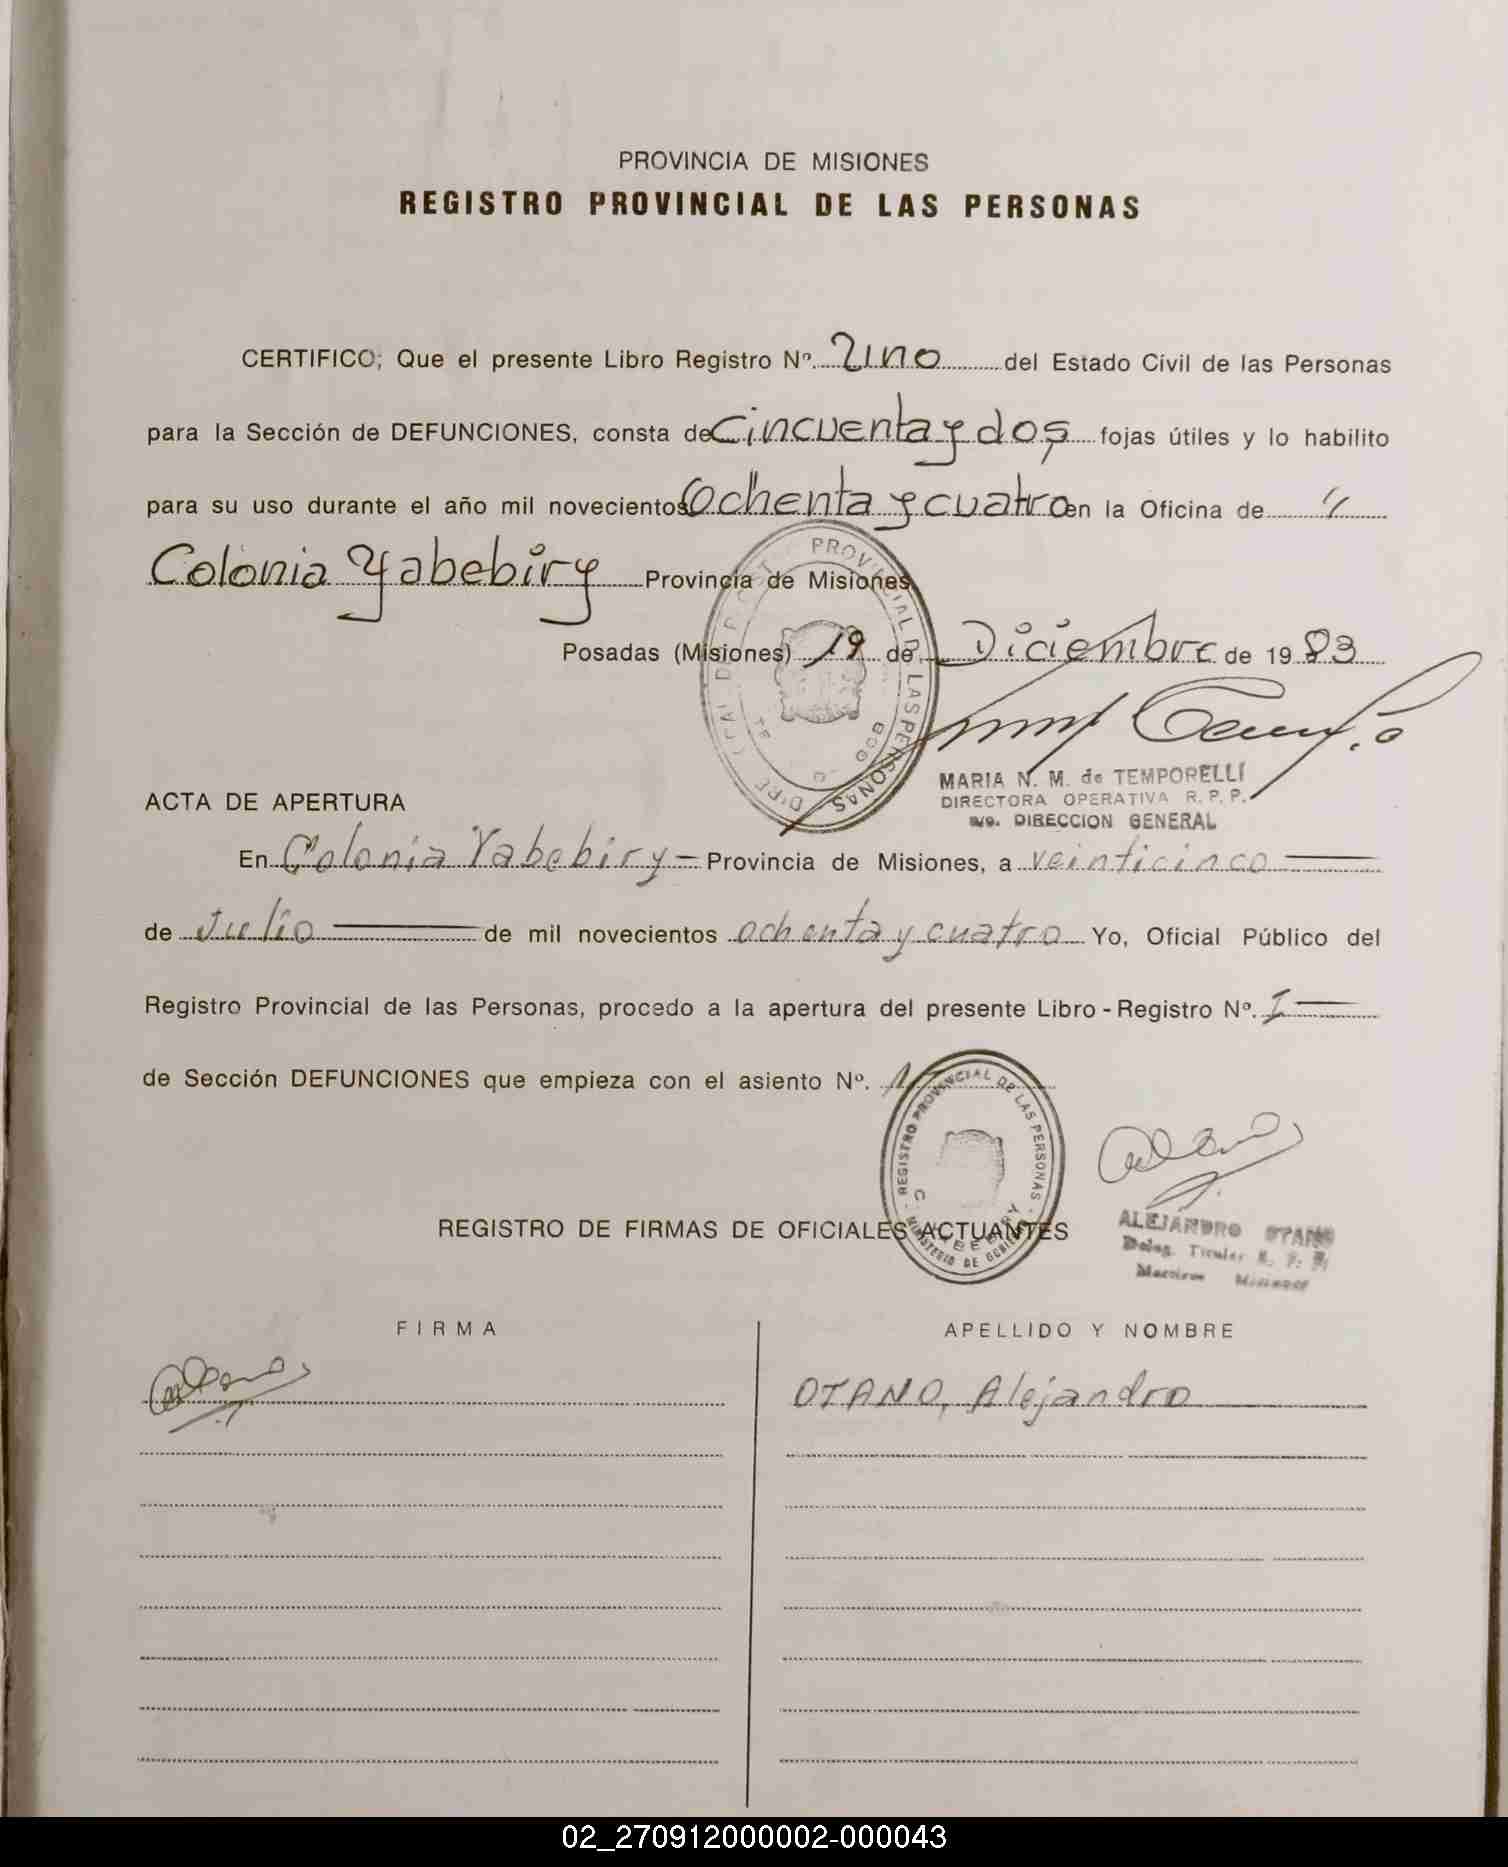 PROVINCIA DE MISIONES
REGISTRO PROVINCIAL DE LAS PERSONAS
CERTIFICO; Que el presente Libro Registro Nº. Uno del Estado Civil de las Personas
para la Sección de DEFUNCIONES, consta de Cincuenta y dos fojas útiles y lo habilito
para su uso durante el año mil novecientos Ochenta y cuatro en la Oficina de "
Colonia Yabebiry Provincia de Misiones
Posadas (Misiones) 19 de Diciembre de 1983
PROVINCIAL DE LAS PERSONAS
MARIA N. M. de TEMPORELLI
DIRECTORA OPERATIVA R. P. P.
a/c. DIRECCION GENERAL
ACTA DE APERTURA
En Colonia Yabebiry - Provincia de Misiones, a veinticinco
de Julio de mil novecientos ochenta y cuatro Yo, Oficial Público del
Registro Provincial de las Personas, procedo a la apertura del presente Libro - Registro Nº. I
de Sección DEFUNCIONES que empieza con el asiento Nº. 1
REGISTRO PROVINCIAL DE LAS PERSONAS
C. YABEBIRY
MINISTERIO DE GOBIERNO
ALEJANDRO OTANO
Deleg. Titular R. P. P.
Misiones
REGISTRO DE FIRMAS DE OFICIALES ACTUANTES
FIRMA
APELLIDO Y NOMBRE
OTANO, Alejandro
02_270912000002-000043